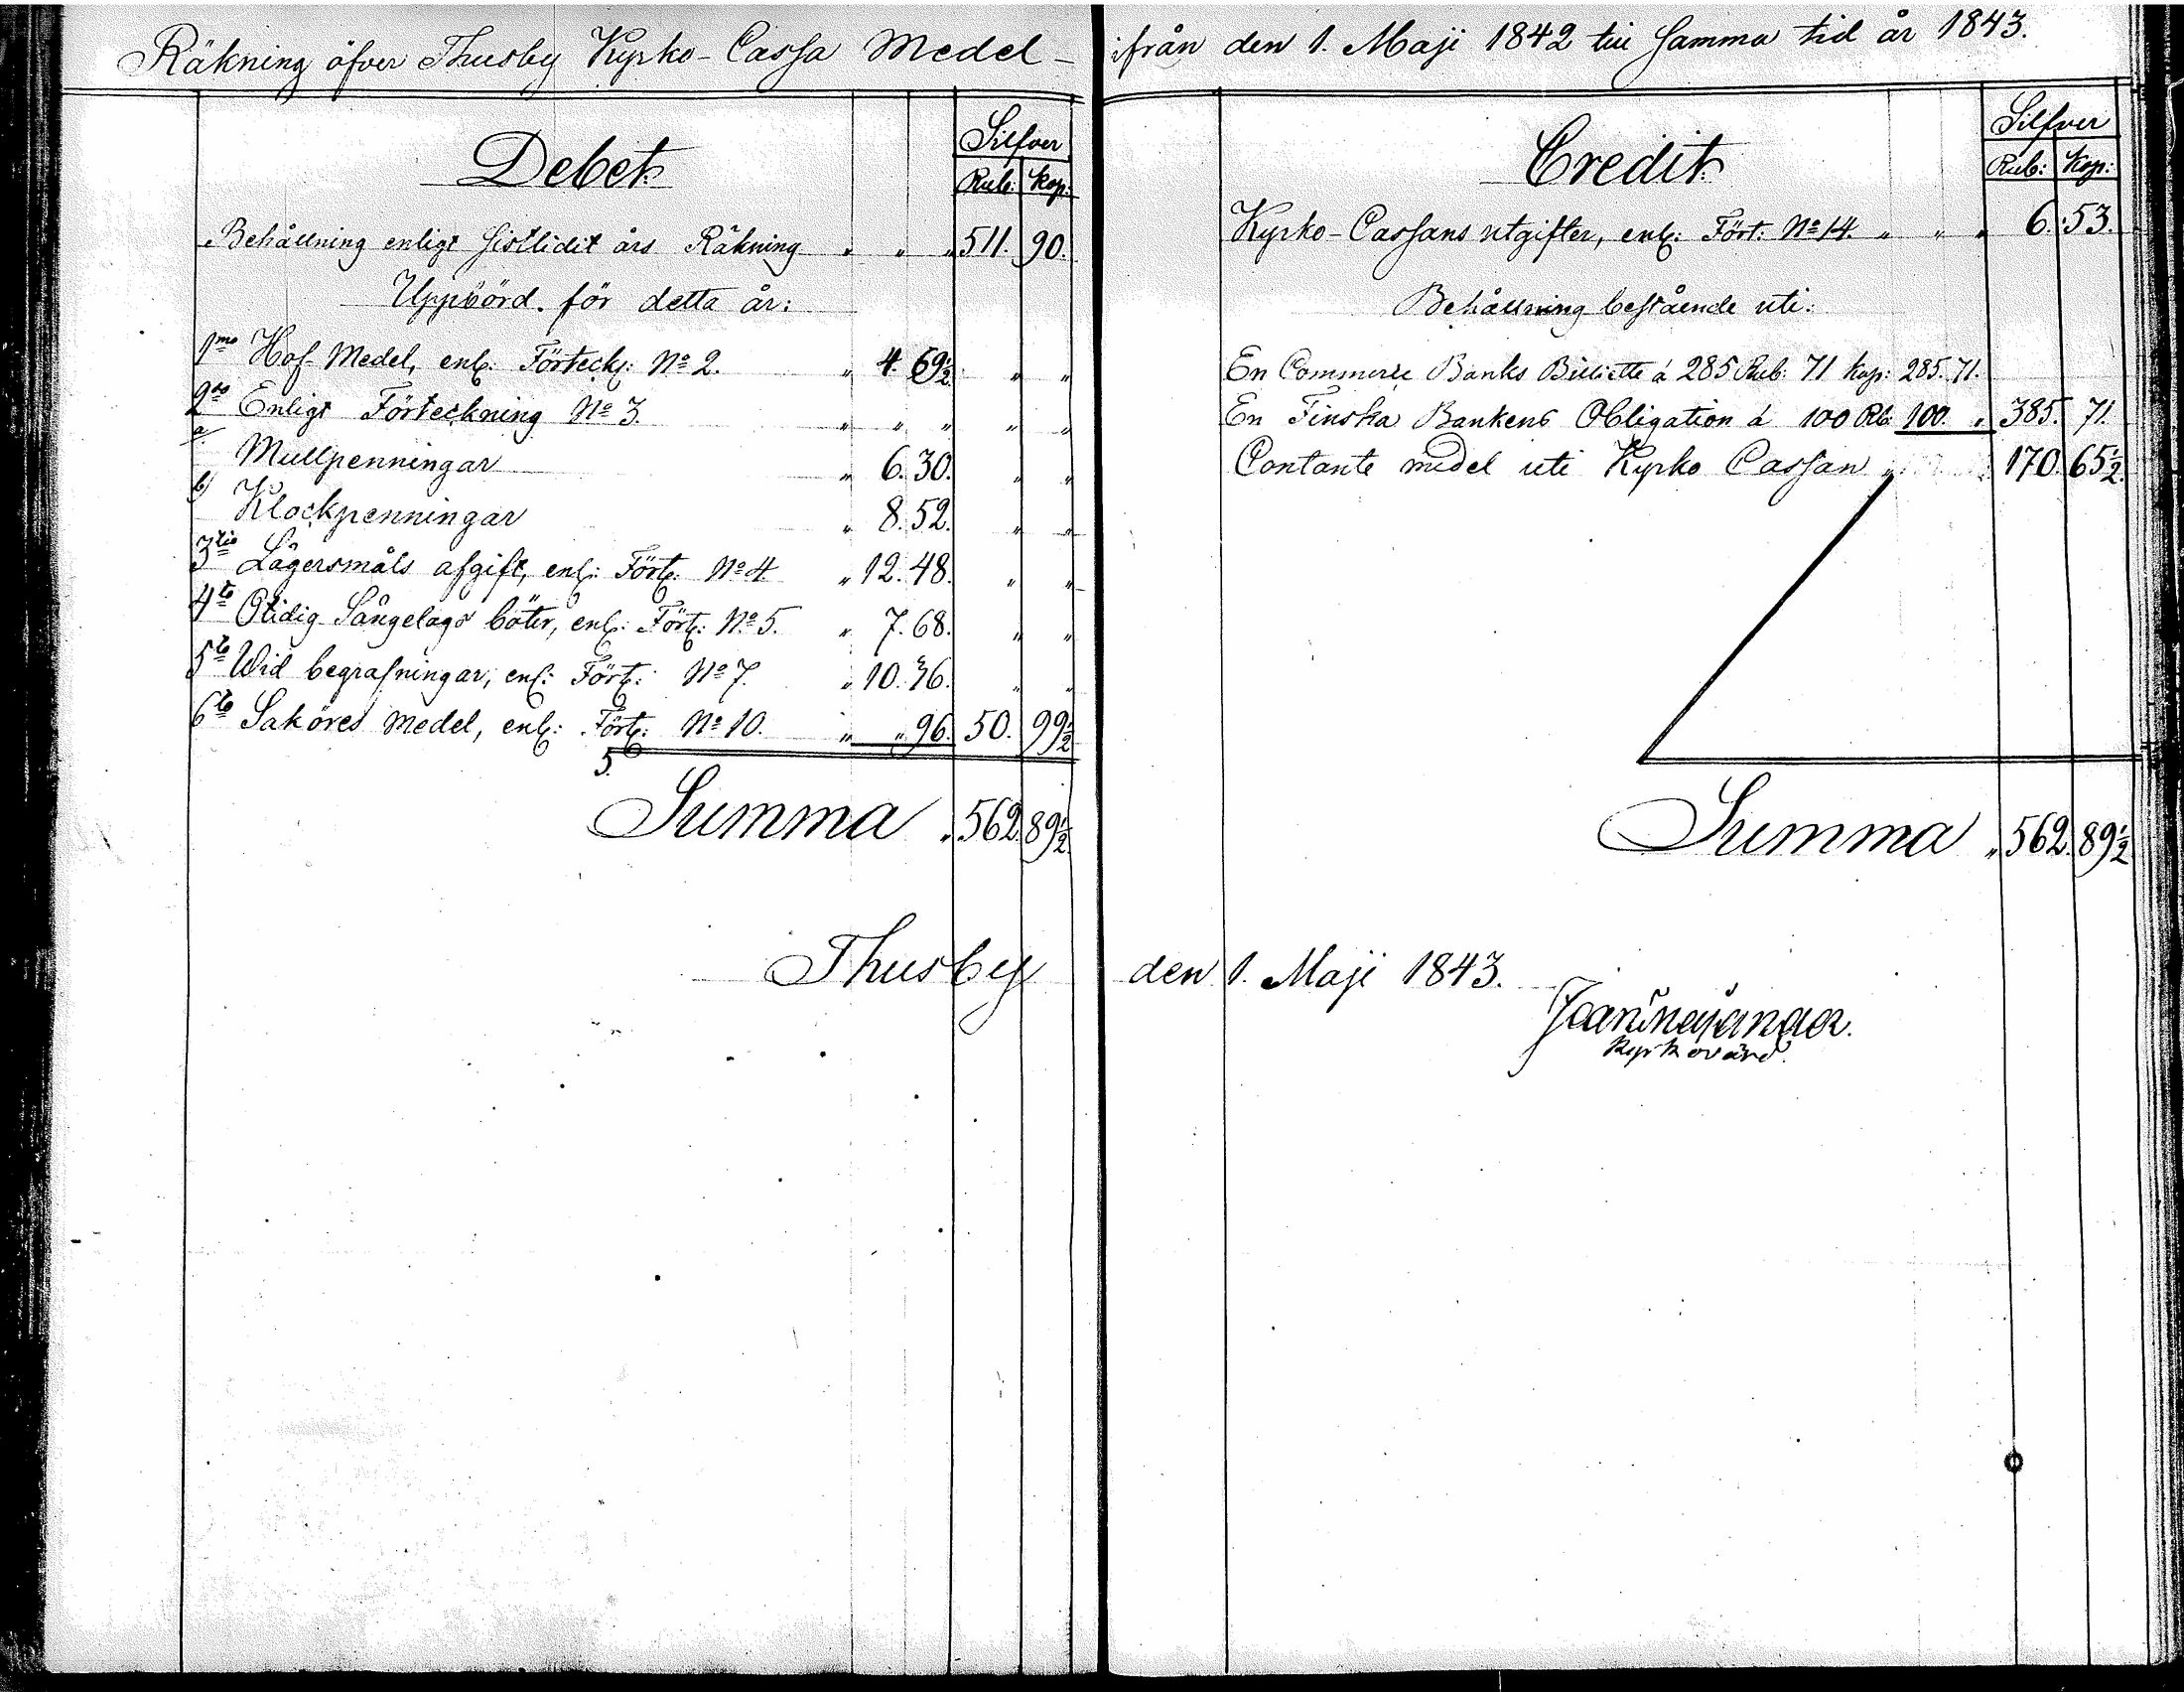 Räkning öfver Thusby Kyrko-Cassa Medel - ifrån den 1. Maji 1842 till samma tid år 1843.
Debet
Silfver
Rub: Kop:
Behållning enligt sistlidit års Räkning " " " 511. 90.
Uppbörd för detta år:
1mo Hof Medel, enl: Förteckn: No 2. " 4. 69½ " "
2do Enligt Förteckning No 3. " " " " "
a/ Mullpenningar " 6. 30. " "
b/ Klockpenningar " 8. 52. " "
3tio Lägersmåls afgift, enl: Fört: No 4 " 12. 48. " "
4to Otidig Sängelags böter, enl: Fört: No 5. " 7. 68. " "
5to Wid begrafningar, enl: Fört: No 7. " 10. 36. " "
6to Saköres medel, enl: Fört: No 10. " " 96. 50. 99½
S.
Summa " 562. 89½.
Credit
Silfver
Rub: Kop:
Kyrko-Cassans utgifter, enl: Fört: No 14. " " " 6. 53.
Behållning bestående uti:
En Commerce Banks Billiette á 285 Rub: 71 Kop: 285. 71.
En Finska Bankens Obligation á 100 Rb. 100. " 385. 71.
Contante medel uti Kyrko Cassan " 170. 65½.
Summa " 562. 89½
Thusby den 1. Maji 1843.
Kyrkovärd.